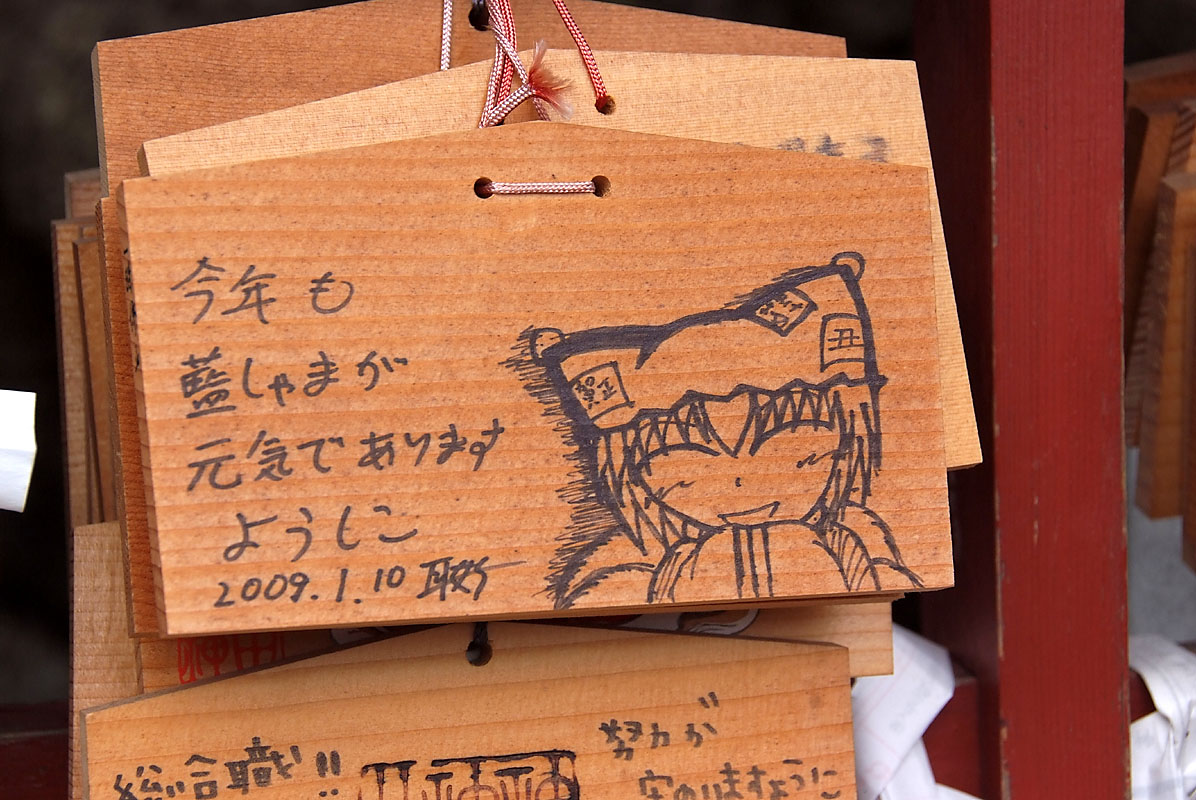 今年も
藍しゃまが
元気であります
ようしに
2009.1.10
賀正
賀正
丑
総合職に!!
努力が
実のりますように